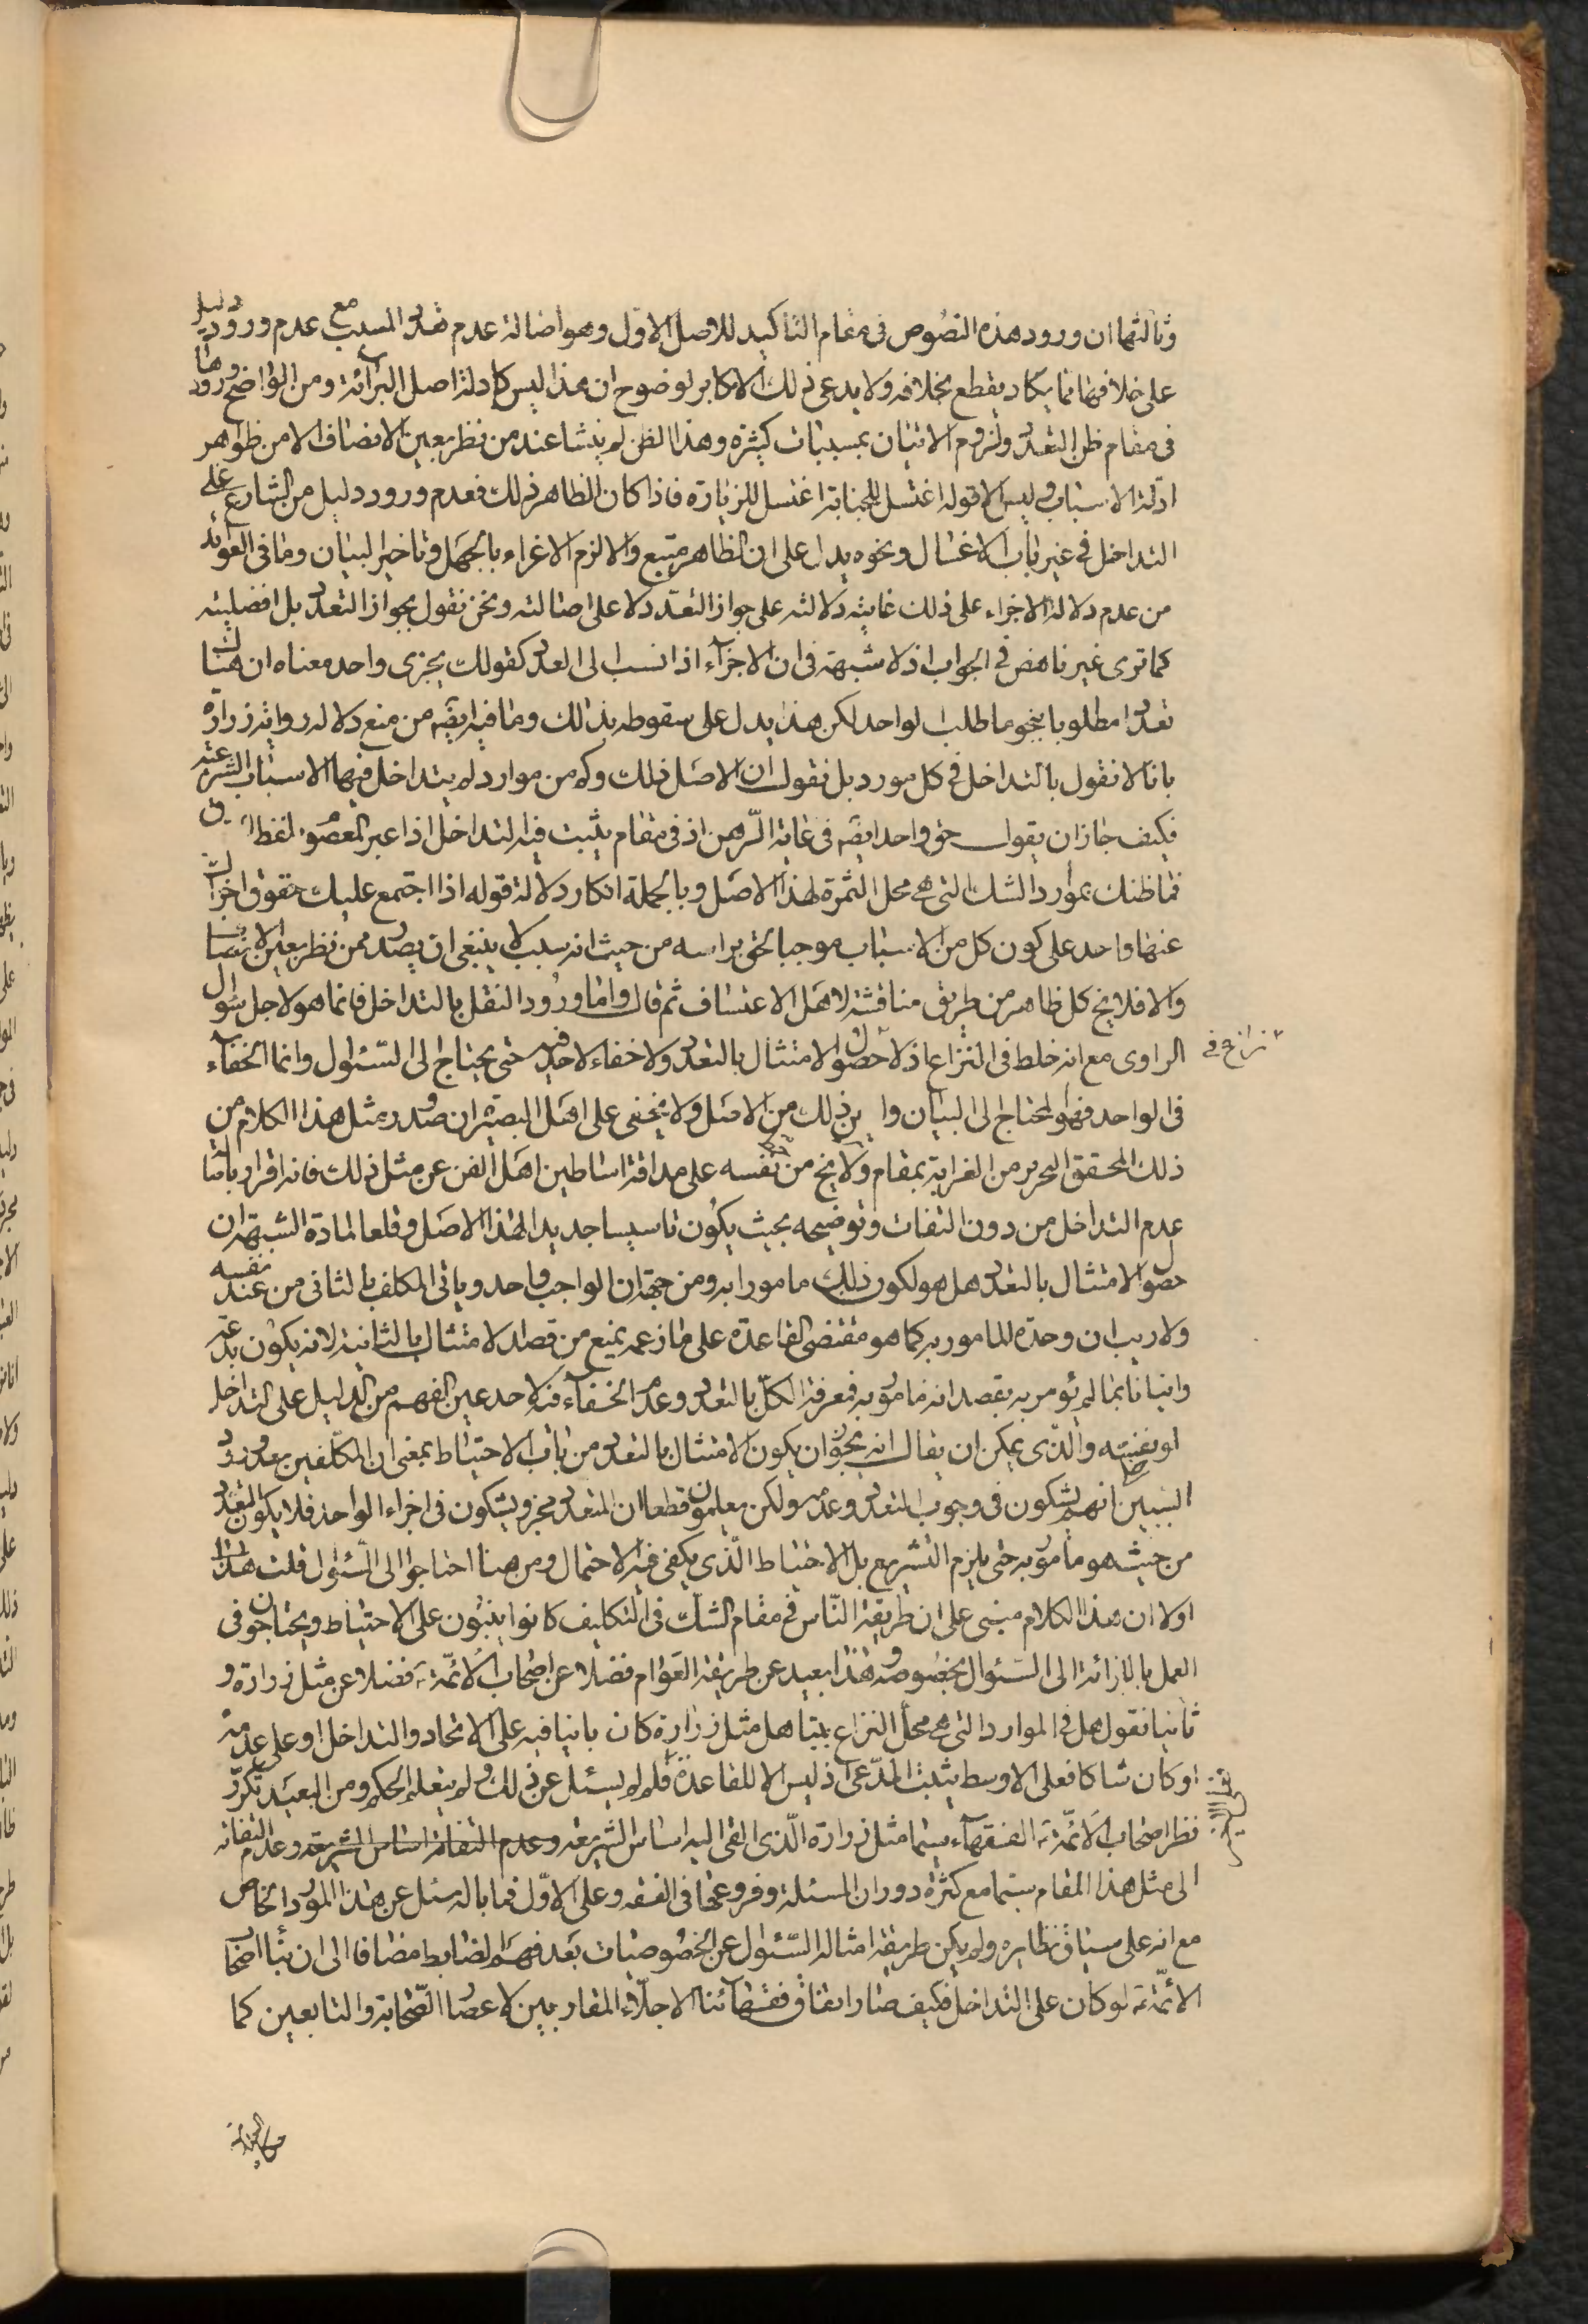 وثالثها ان ورود هذه النصوص فى مقام التاكيد للاصل الاول وهو اصالة عدم تعدد المسبب مع عدم ورود دليل
على خلافها مما يكاد يقطع بخلافه ولا يدعى ذلك الا مكابر لوضوح ان هذا ليس كادلة اصل البرائة ومن الواضح ورودها
فى مقام ظن التعدد ولزوم الاتيان بمسببات كثيرة وهذا الظن لم ينشا عند من نظر بعين الانصاف الا من ظواهر
ادلة الاسباب وليس الا قوله اغتسل للجنابة اغتسل للزيارة فاذا كان الظاهر ذلك فعدم ورود دليل من الشارع على
التداخل فى غير باب الاغسال ونحوه يدل على ان الظاهر متبع والا لزم الاغراء بالجهل وتاخير البيان وما فى العوائد
من عدم دلالة الاجزاء على ذلك غايته دلالته على جواز التعدد لا على اصالته ونحن نقول بجواز التعدد بل افضليته
كما ترى غير ناهض فى الجواب اذ لا شبهة فى ان الاجزاء اذا نسب الى العدد كقولك يجزى واحد معناه ان هناك
تعددا مطلوبا بنحو ما طلب الواحد لكن هذا يدل على سقوطه بذلك وما فيه ايضه من منع دلالة رواية زرارة
بانا لا نقول بالتداخل فى كل مورد بل نقول ان الاصل ذلك وكم من موارد لم يتداخل فيها الاسباب الشرعية
فكيف جاز ان يقول حق واحد ايضه فى غاية الوهن اذ فى مقام يثبت فيه التداخل اذا عبر المعصوم لفظ
فما ظنك بموارد الشك التى هى محل الثمرة لهذا الاصل وبالجملة انكار دلالة قوله اذا اجتمع عليك حقوق اجزاك
عنها واحد على كون كل من الاسباب موجبا لحق براسه من حيث انه سبب لا ينبغى ان يصدر ممن نظر بعين الانصاف
والا فلا يخ كل ظاهر من طريق مناقشة لاهل الاعتساف ثم قال واما ورود النقل بالتداخل فانما هو لاجل سؤال
الراوى مع انه خلط فى النزاع اذ لا نزاع فى حصول الامتثال بالتعدد ولا خفاء لاحد فيه حتى يحتاج الى السئول وانما الخفاء
فى الواحد فهو المحتاج الى البيان واين ذلك من الاصل ولا يخفى على اهل البصيرة ان صدور مثل هذا الكلام من
ذلك المحقق النحرير من الغرابة بمقام ولا يخ من نفسه على مداقة اساطين اهل الفن عن مثل ذلك فانه اقرار باصالة
عدم التداخل من دون التفات وتوضيحه بحيث يكون تاسيسا جديدا لهذا الاصل وقلعا لمادة الشبهة ان
حصول الامتثال بالتعدد هل هو لكون ذلك مامورا به ومن جهة ان الواجب واحد وياتى المكلف بالثانى من عند نفسه
ولا ريب ان وحدة المامور به كما هو مقتضى القاعدة على ما زعمه يمنع من قصد الامتثال بالثانية لانه يكون بدعة
واتيانا بما لم يؤمر به بقصد انه مامور به فمعرفة الكل بالتعدد وعدم الخفاء فيه لاحد عين الفهم من الدليل على التداخل
او نفيه والذى يمكن ان يقال انه يجوز ان يكون الامتثال بالتعدد من باب الاحتياط بمعنى ان المكلفين بعد ورود
السببين انهم يشكون فى وجوب التعدد وعدمه ولكن يعلمون قطعا ان المتعدد مجز ويشكون فى اجزاء الواحد فلا يكون التعدد
من حيث هو مامور به حتى يلزم التشريع بل الاحتياط الذى يكفى فيه الاحتمال ومن هنا احتاجوا الى السئول قلت هذا
اولا ان هذا الكلام مبنى على ان طريقة الناس فى مقام الشك فى التكليف كانوا يبنون على الاحتياط ويحتاجون فى
العمل بالبرائة الى السئوال بخصوصه وهذا بعيد عن طريقة العوام فضلا عن اصحاب الائمة فضلا عن مثل زرارة و
ثانيا نقول هل فى الموارد التى هى محل النزاع بيننا هل مثل زرارة كان بانيا فيه على الاتحاد والتداخل او على عدمه
او كان شاكا فعلى الاوسط يثبت المدعى اذ ليس الا للقاعدة فلم لم يسئل عن ذلك ولم يتعلم الحكم ومن البعيد تكرر
نظر اصحاب الائمة الفقهاء سيما مثل زرارة الذى القى اليه اساس الشريعة وعدم التفات اساس الشريعة وعدم التفاته
الى مثل هذا المقام سيما مع كثرة دوران المسئلة وفروعها فى الفقه وعلى الاول فما باله سئل عن هذا المورد الخاص
مع انه على سياق نظايره ولم يكن طريقة امثاله السئول عن الخصوصيات بعد فهم الضابط مضافا الى ان بناء اصحاب
الائمة لو كان على التداخل فكيف صار اتفاق فقهائنا الاجلاء المقاربين لاعصار الصحابة والتابعين كما